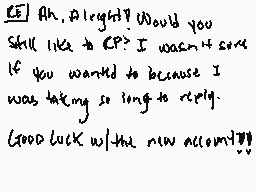 RE Ah, Alright! Would you
still like to RP? I wasn't sure
if you wanted to because I
was taking so long to reply.
Good luck w/ the new account!!